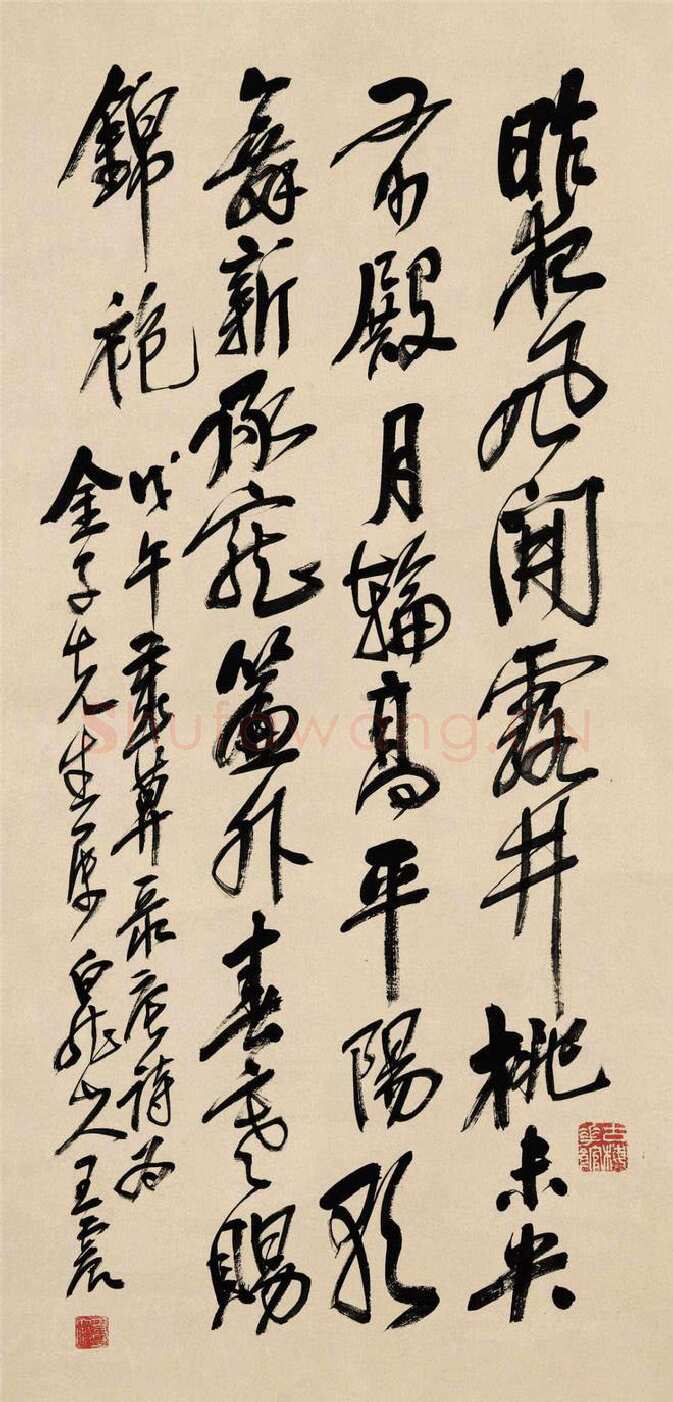 昨夜風開露井桃未央
前殿月輪高平陽歌
舞新承寵簾外春寒賜
錦袍
戊午唐詩為
金子先生屬 白龍山人王震
Shufawang.CN